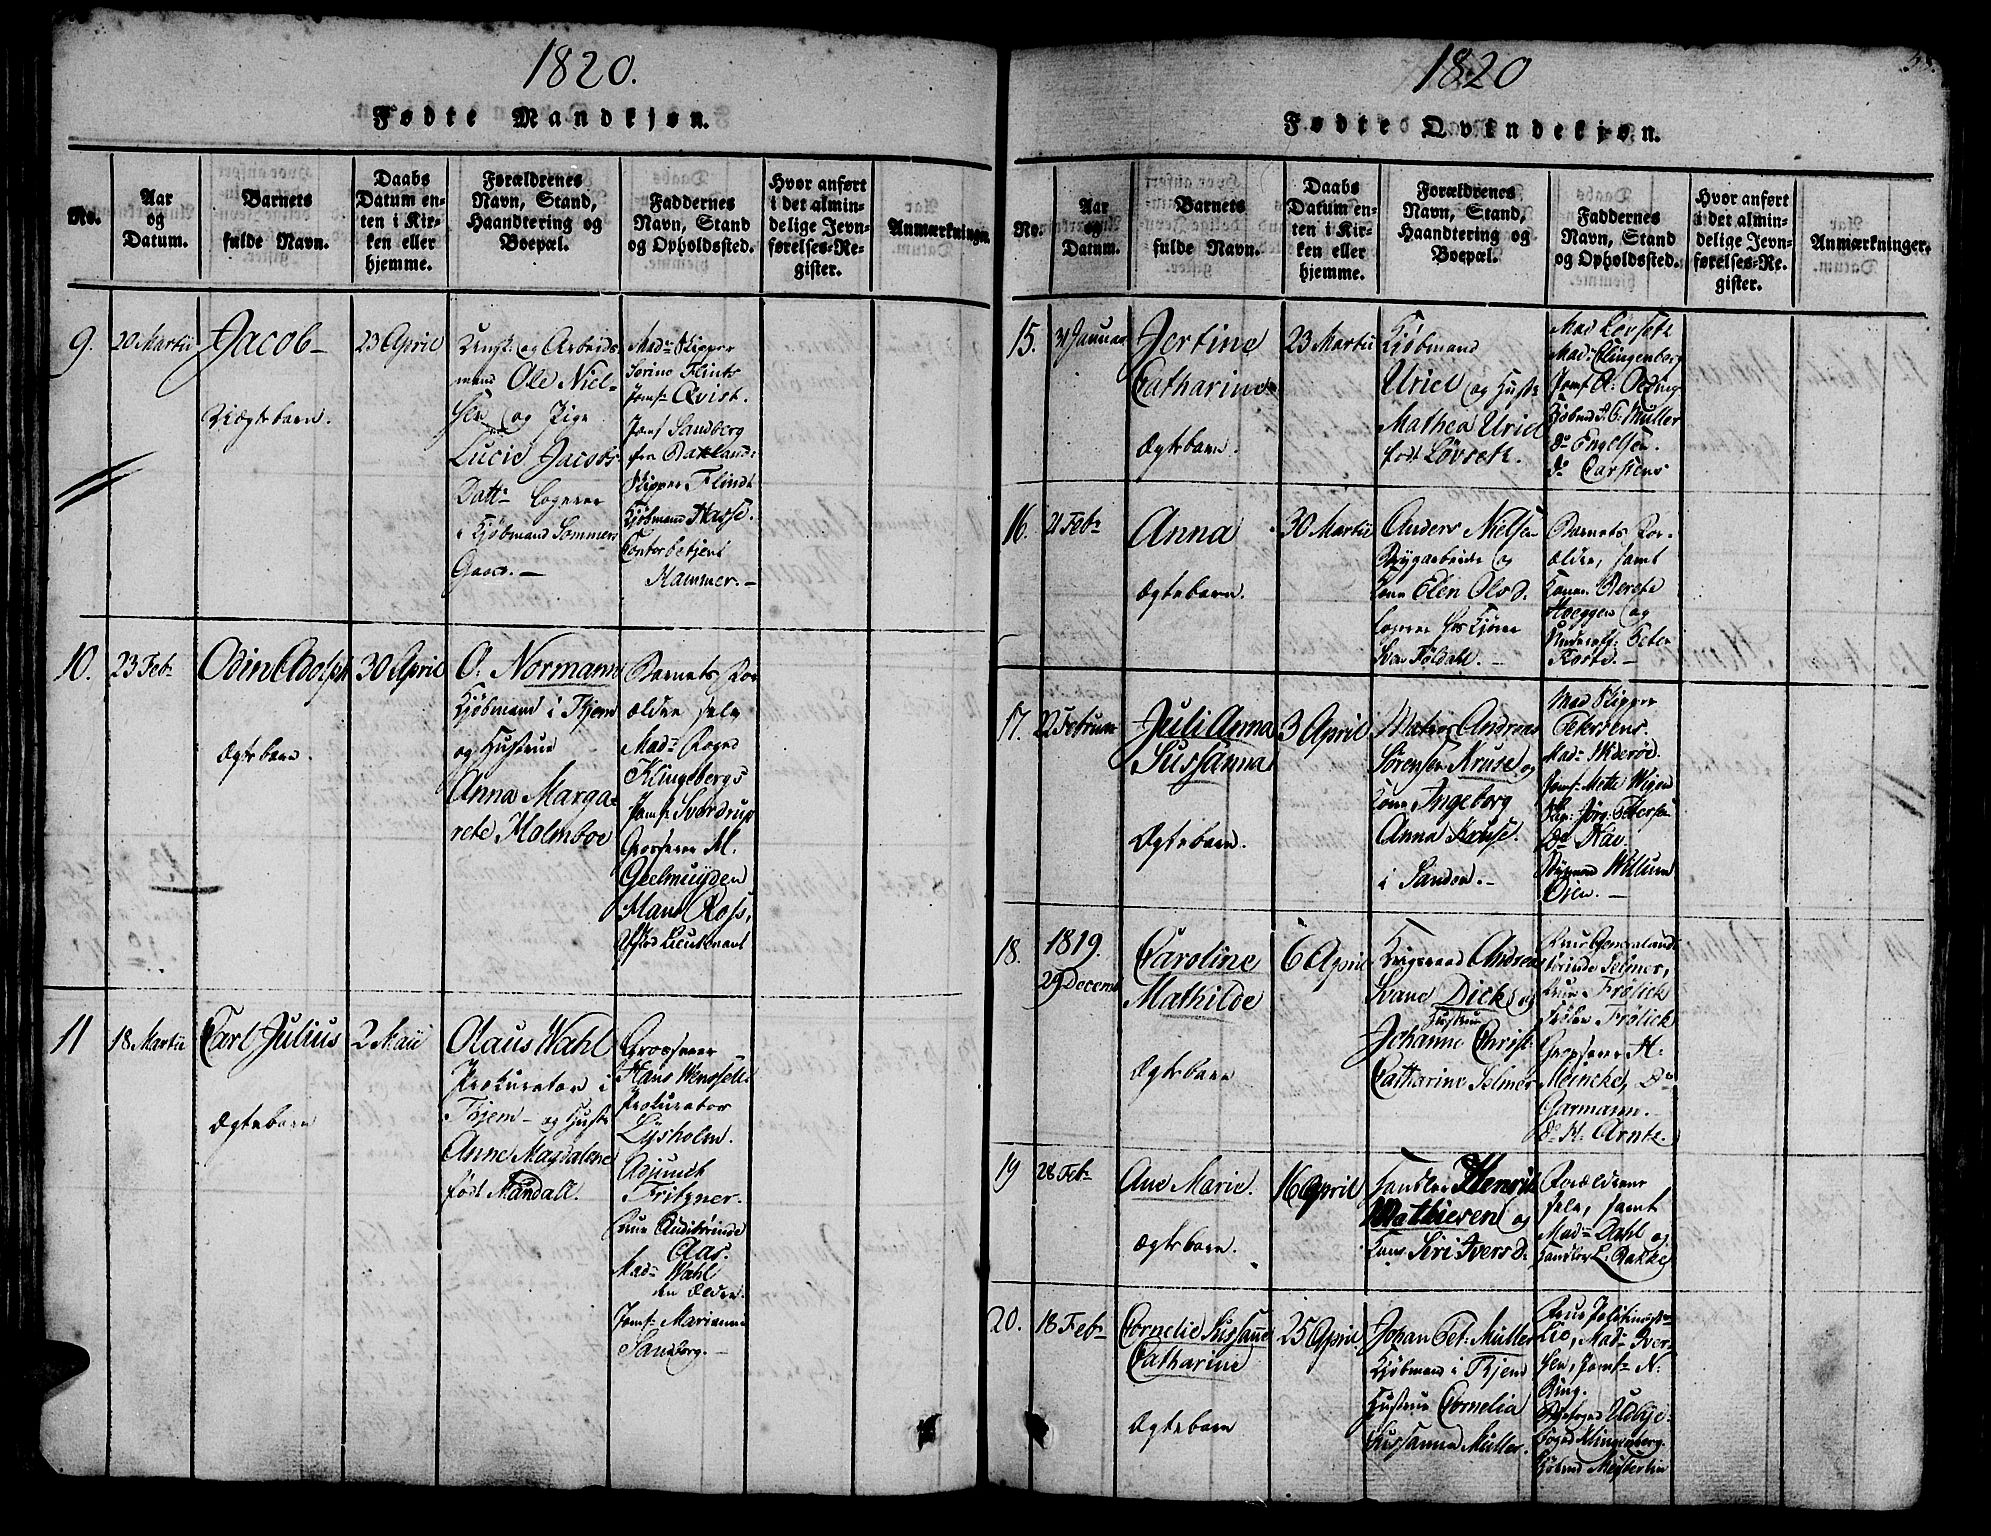 1820.
Fødte Mandkjøn.
No.
Aar
og
Datum.
Barnets
fulde Navn.
Daabs
Datum en-
ten i Kir-
ken eller
hjemme.
Forældrenes
Navn, Stand,
Haandtering og
Boepæl.
Faddernes
Navn, Stand
og Opholdssted.
Hvor anført
i det almin-
delige Jevn-
førelses-Re-
gister.
Anmærkninger.
9.
20 Martii
Jacob
Uægtebarn.
23 April
og Arbeids
mand Ole Niel-
sen og Pige
Lucie Jacobs
Datt: logerer
i Kjøbmand Sommers
Gaard.
Mad: Skipper
Sorine Flints
Jomf: Qvist.
Jomf Sandberg
fra Bakland:
Skipper Flindt
Kjøbmand Hasse.
Contorbetjent
Hammer.
10.
23 Feb
Odin Adolph
Ægtebarn.
30 April
O. Normann
Kjøbmand i Thjem
og Hustrue
Anna Marga-
rete Holmboe
Barnets For
ældre selv
Mad: Foged
Klingebergs
Jomf: Svordrup
Grosserer M.
Geelmuyden
Hans Ross,
Lieutenant
11
18 Martii
Carl Julius
Ægtebarn
2 Maii
Olaus Wahl
Prokurator i
Thjem og Hustr
Anne Magdalene
født Mandall.
Grosserer
Hans Wensell
Prokurator
Lysholm.
Adjunct
Fritzner.
Frue Auditørinde
Aas.
Mad: Wahl
den ældre.
Jomf: Marianne
Sandborg.
1820
Fødte Qvindekjøn.
No.
Aar
og
Datum.
Barnets
fulde Navn.
Daabs
Datum en-
ten i Kir-
ken eller
hjemme.
Forældrenes
Navn, Stand,
Haandtering og
Boepæl.
Faddernes
Navn, Stand
og Opholdssted.
Hvor anført
i det almin-
delige Jevn-
førelses-Re-
gister.
Anmærkninger.
15.
Januar
Jertine
Catharine
Ægtebarn.
23 Martii
Kjøbmand
Uriel og Hustr
Mathea Uriel
født Løvseth.
Mad Løvseth
Mad: Klingenberg
Jomf A: Oeding
Kjøbmd J. C. Müller
Do Engelsen.
Do Carstens
16.
21 Feb
Anna
Ægtebarn.
30 Martii
Anders Nielsen
Brygarbeider og
Kone Elen Olsd.
logerer hos Kjører
Sven Foldahl.
Barnets For-
ældre, samt
Konen Berete
Hoeggen og
Peter
Roste.
17.
22 Februar
Juli Anna
Sussanna
Ægtebarn.
3 April
Matros Andreas
Sørensen Kruse og
Kone Ingeborg
Anna Kruse.
i Sanden.
Mad Skipper
Petersens
Mad: Widerøe
Jomf: Mette Wigen
Skip: Jørg: Petersen
Do Nav.
Willum
Øien.
18.
1819.
29 Decemb
Caroline
Mathilde
Ægtebarn
6 April
Krigsraad Andreas
Svane Dick og
Hustrue
Johanne Christ:
Catharine Selmer
Frue Generalaud-
itørinde Selmer,
Frue Frølich
Frøken Frølich
Grosserer H.
Meincke, Do
Garmann.
Do H. Arntz.
19
28 Feb
Ane Marie.
Ægtebarn.
16 April
Handler Henrik
Mathiesen og
Kone Siri Iversd.
Forældrene
selv, samt
Mad: Dahl og
Handler L: Bakke
20.
18 Feb
Cornelie Sussanne
Catharine
Ægtebarn
25 April.
Johan Pet: Müller
Kjøbmand i Thjem
Hustrue Cornelia
Sussanna Müller.
Frue Politimester
Lie, Mad: Iver-
sen, Jomf: N.
Ring.
Byefoged Udbye
Foged Klingenberg.
Kjøbmd Meisterlin